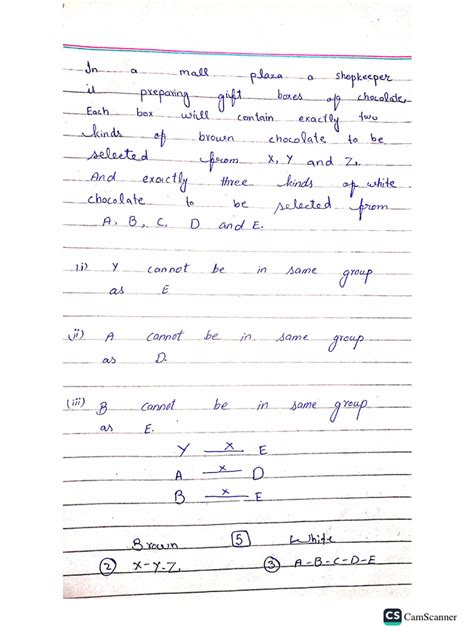 In a mall plaza a shopkeeper
is preparing gift boxes of chocolate.
Each box will contain exactly two
kinds of brown chocolate to be
selected from X, Y and Z.
And exactly three kinds of white
chocolate to be selected from
A, B, C, D and E.
(i) Y cannot be in same group
as E
(ii) A cannot be in same group
as D.
(iii) B cannot be in same group
as E.
Y x E
A x D
B x E
Brown 5 White
2 X-Y-Z. 3 A-B-C-D-E
CS CamScanner